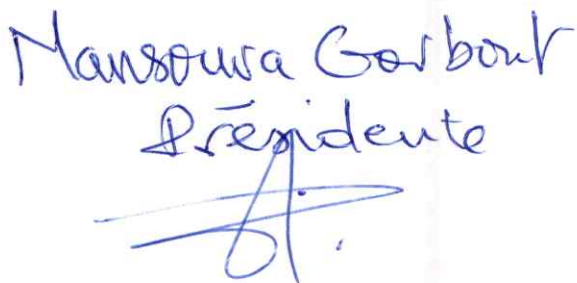 Mansoura Gorbout
Présidente